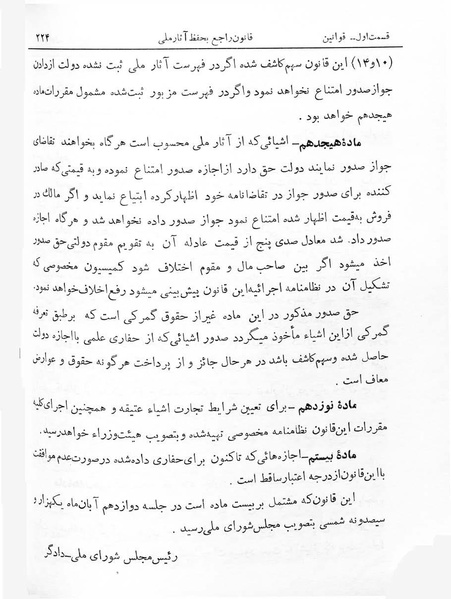 قسمت اول ـ قوانین قانون راجع بحفظ آثار ملی ۲۲۴
(۱۰ و ۱۴) این قانون سهم کاشف شده اگر در فهرست آثار ملی ثبت نشده دولت از دادن
جواز صدور امتناع نخواهد نمود و اگر در فهرست مزبور ثبت شده مشمول مقررات ماده
هیجدهم خواهد بود .
مادهٔ هیجدهم ـ اشیائی که از آثار ملی محسوب است هرگاه بخواهند تقاضای
جواز صدور نمایند دولت حق دارد از اجازه صدور امتناع نموده و به قیمتی که صادر
کننده برای صدور جواز در تقاضانامه خود اظهار کرده ابتیاع نماید و اگر مالک در
فروش به قیمت اظهار شده امتناع نمود جواز صدور داده نخواهد شد و هرگاه اجازه
صدور داد. شد معادل صدی پنج از قیمت عادله آن به تقویم مقوم دولتی حق صدور
اخذ میشود اگر بین صاحب مال و مقوم اختلاف شود کمیسیون مخصوصی که
تشکیل آن در نظامنامه اجرائیه این قانون پیش بینی میشود رفع اخلاف خواهد نمود.
حق صدور مذکور در این ماده غیر از حقوق گمرکی است که برطبق تعرفه
گمرکی از این اشیاء مأخوذ میگردد صدور اشیائی که از حفاری علمی با اجازه دولت
حاصل شده و سهم کاشف باشد در هر حال جائز و از پرداخت هر گونه حقوق و عوارض
معاف است .
مادهٔ نوزدهم ـ برای تعیین شرایط تجارت اشیاء عتیقه و همچنین اجرای کلیه
مقررات این قانون نظامنامه مخصوصی تهیه شده و بتصویب هیئت وزراء خواهد رسید.
مادهٔ بیستم ـ اجازه هائی که تاکنون برای حفاری داده شده در صورت عدم موافقت
با این قانون از درجه اعتبار ساقط است .
این قانون که مشتمل بر بیست ماده است در جلسه دوازدهم آبان ماه یکهزار و
سیصد و نه شمسی بتصویب مجلس شورای ملی رسید .
رئیس مجلس شورای ملی ـ دادگر